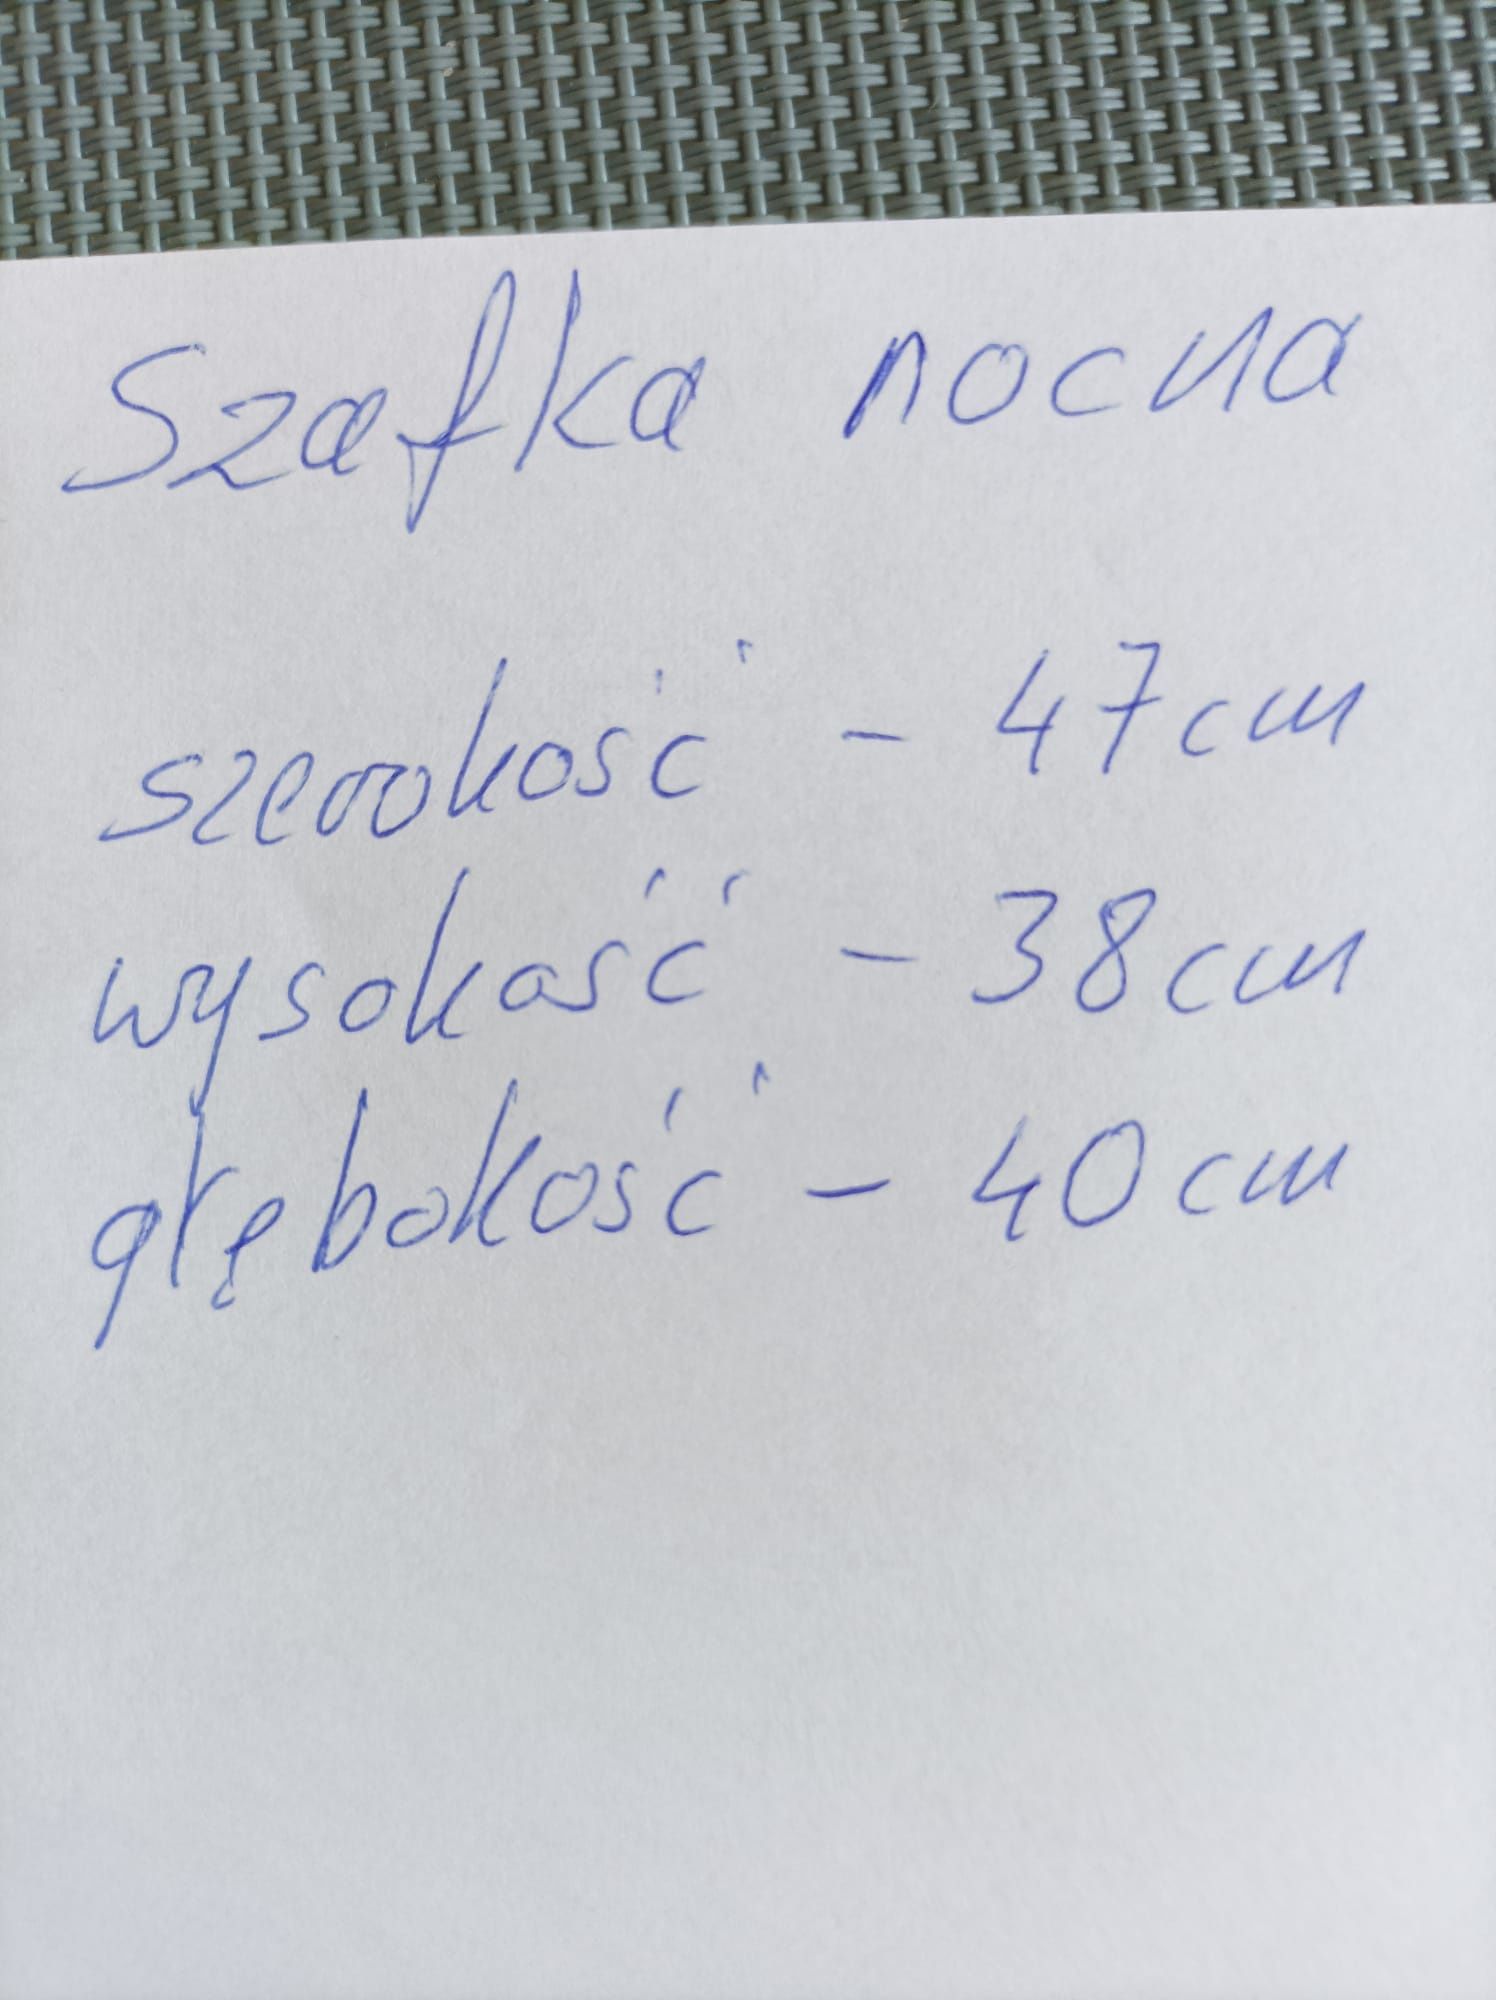 Szafka nocna
szerokość - 47cm
wysokość - 38cm
głębokość - 40cm